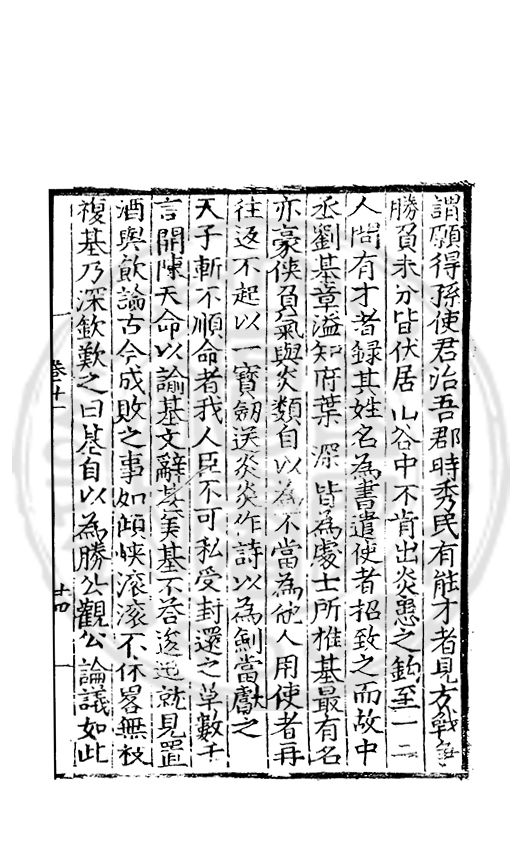 謂願得孫使君治吾郡時秀民有能才者見方戰爭
勝負未分皆伏居山谷中不肯出炎患之鉤至一二
人問有才者錄其姓名為書遣使者招致之而故中
丞劉基章溢知府葉深皆為處士所推基最有名
亦豪俠負氣與炎類自以為不當為他人用使者再
往返不起以一寶劒送炎炎作詩以為劒當獻之
天子斬不順命者我人臣不可私受封還之草數千
言開陳天命以諭基文辭甚美基不荅逡廵就見置
酒與飲論古今成敗之事如傾峽滾滾不休畧無枝
複基乃深欽歎之曰基自以為勝公觀公論議如此
卷十一
廿四